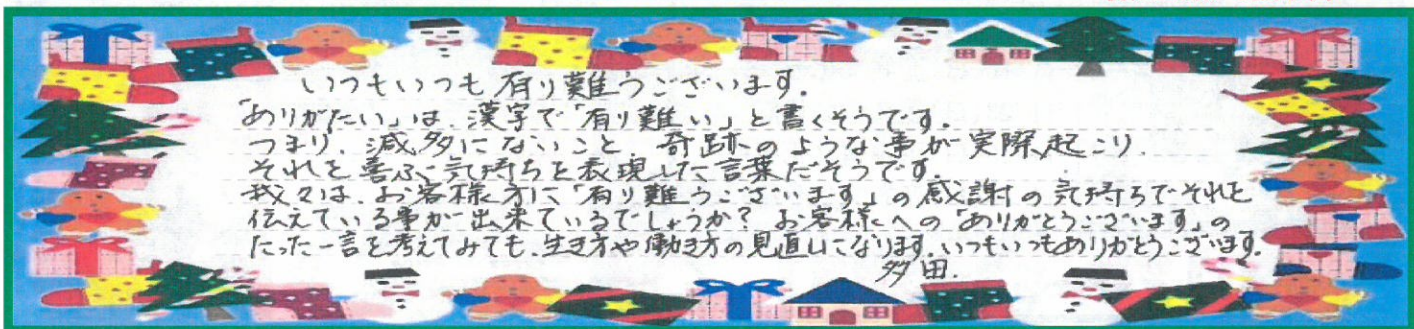 いつもいつも有り難うございます.
「ありがたい」は、漢字で「有り難い」と書くそうです.
つまり、滅多にないこと、奇跡のような事が実際起こり、
それを喜ぶ気持ちを表現した言葉だそうです.
我々は、お客様方に「有り難うございます」の感謝の気持ちでそれを
伝えている事が出来ているでしょうか? お客様への「ありがとうございます」の
たった一言を考えてみても、生き方や働き方の見直しになります.いつもいつもありがとうございます.
多田.